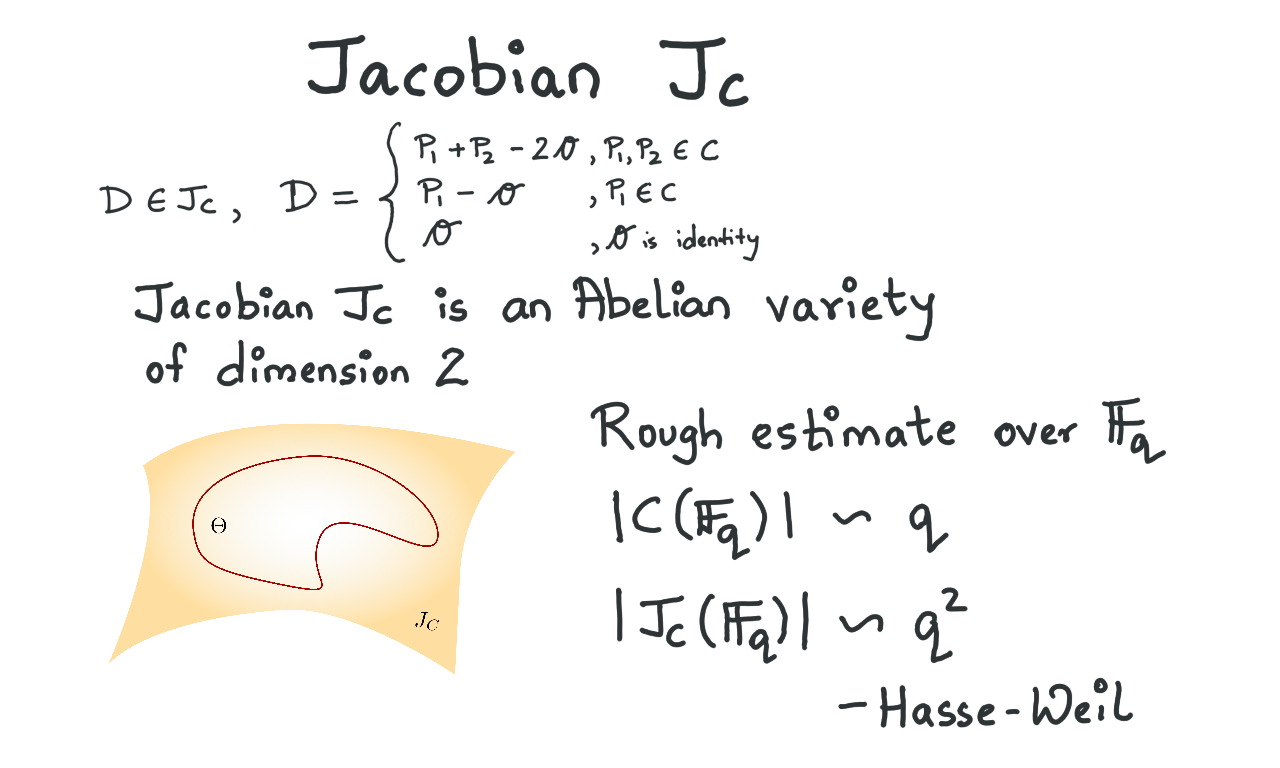 Jacobian J_C
D ∈ J_C, D = { P₁ + P₂ - 2𝒪, P₁, P₂ ∈ C
P₁ - 𝒪, P₁ ∈ C
𝒪, 𝒪 is identity
Jacobian J_C is an Abelian variety
of dimension 2
Rough estimate over 𝔽_q
|C(𝔽_q)| ~ q
Θ
|J_C(𝔽_q)| ~ q²
J_C
- Hasse-Weil